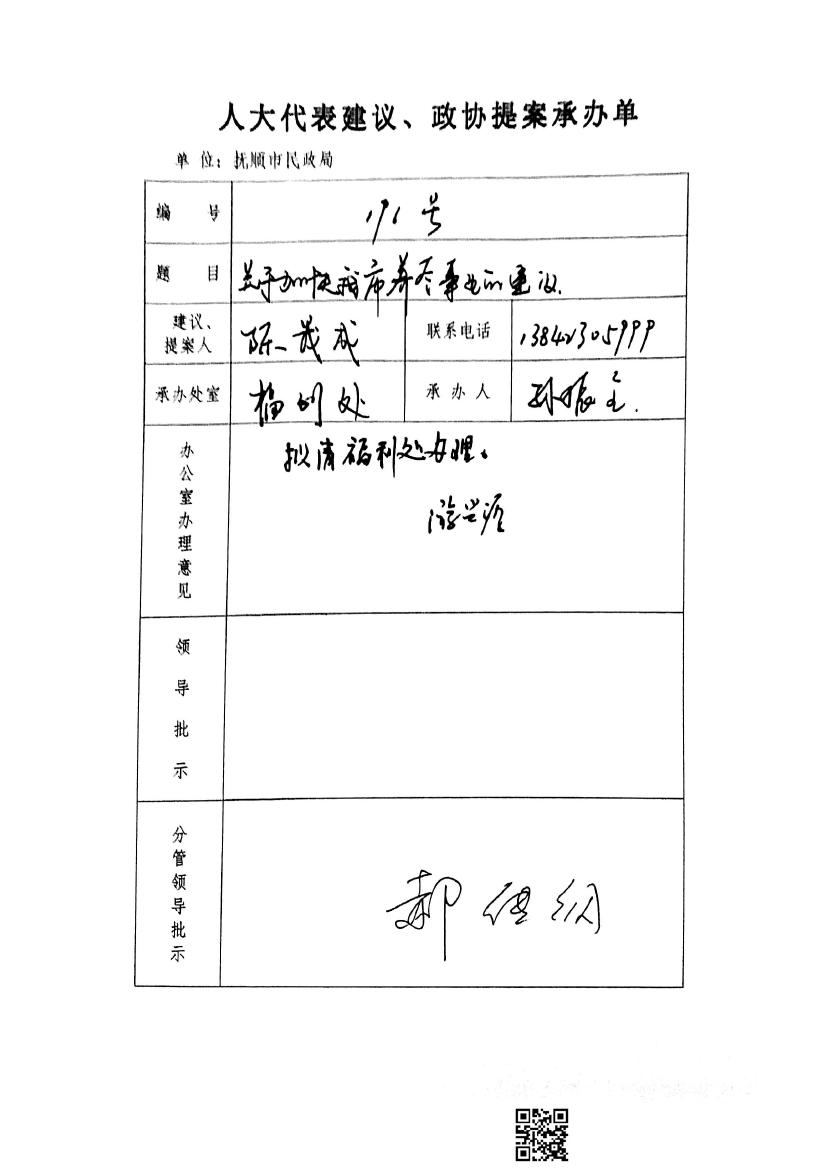 人大代表建议、政协提案承办单
单 位：抚顺市民政局
编 号 191号
题 目 关于加快我市养老事业的建议.
建议、
提案人 陈茂成 联系电话 13842305999
承办处室 福利处 承办人 孙振
办公室办理意见
拟请福利处办理。
游兴源
领导批示
分管领导批示
郝